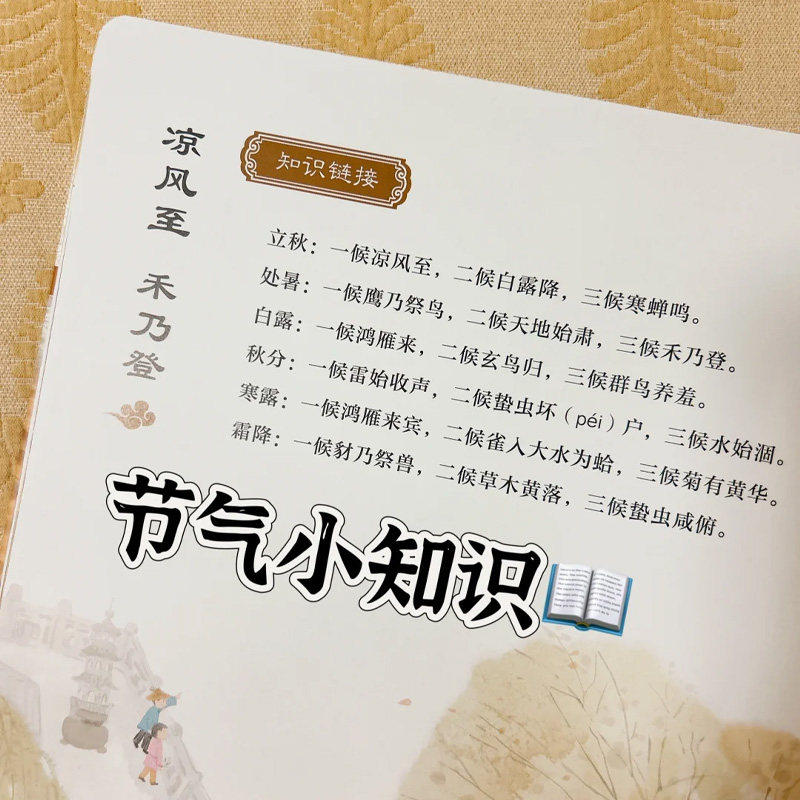 凉风至 禾乃登
知识链接
立秋：一候凉风至，二候白露降，三候寒蝉鸣。
处暑：一候鹰乃祭鸟，二候天地始肃，三候禾乃登。
白露：一候鸿雁来，二候玄鸟归，三候群鸟养羞。
秋分：一候雷始收声，二候蛰虫坏（péi）户，三候水始涸。
寒露：一候鸿雁来宾，二候雀入大水为蛤，三候菊有黄华。
霜降：一候豺乃祭兽，二候草木黄落，三候蛰虫咸俯。
节气小知识